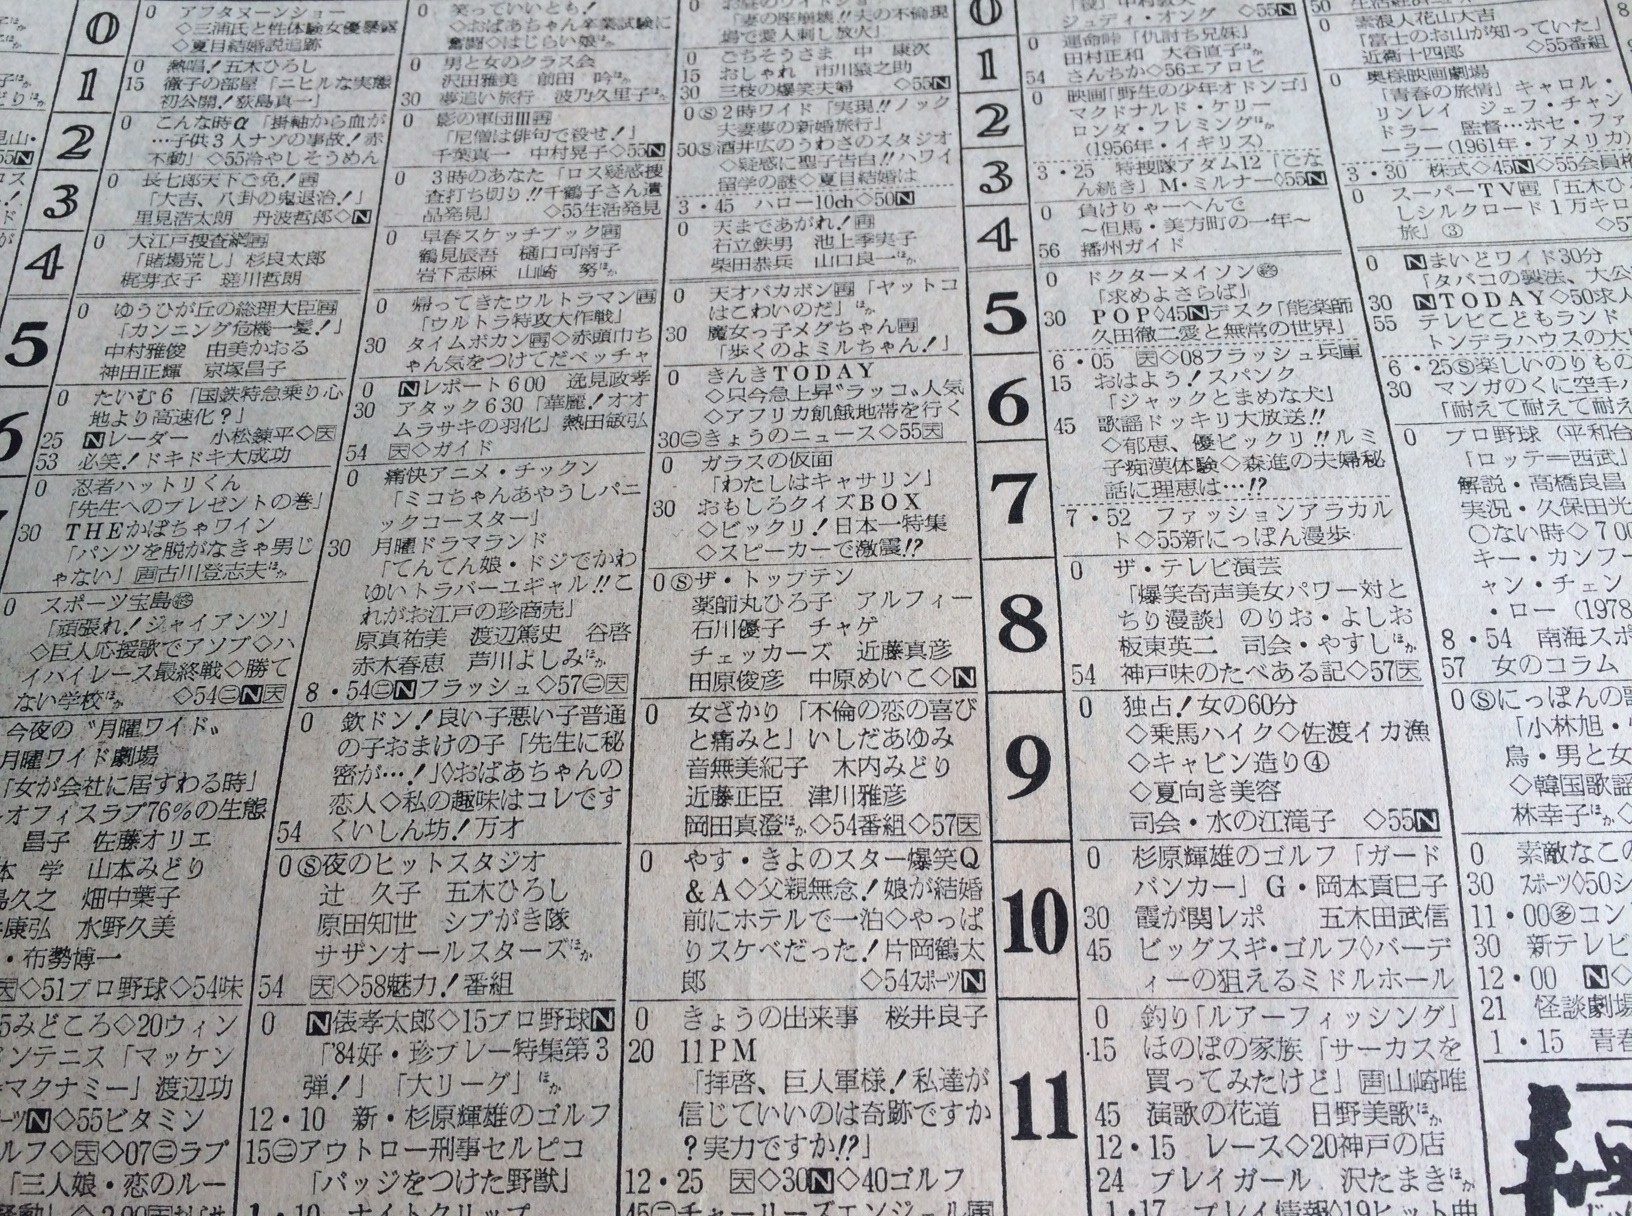 0 アフタヌーンショー
◇三浦氏と性体験女優暴露
◇夏目結婚説追跡
0 熱唱！五木ひろし
15 徹子の部屋「ニヒルな実態
初公開！荻島真一」
0 こんな時α「掛軸から血が
…子供3人ナゾの事故！赤
不動」◇55冷やしそうめん
0 長七郎天下ご免！画
「大吉、八卦の鬼退治！」
里見浩太朗 丹波哲郎◇N
0 大江戸捜査網画
「賭場荒し」杉良太郎
梶芽衣子 瑳川哲朗
0 ゆうひが丘の総理大臣画
「カンニング危機一髪！」
中村雅俊 由美かおる
神田正輝 京塚昌子
0 たいむ6「国鉄特急乗り心
地より高速化？」
25 Nレーダー 小松錬平◇天
53 必笑！ドキドキ大成功
0 忍者ハットリくん
「先生へのプレゼントの巻」
30 THEかぼちゃワイン
「パンツを脱がなきゃ男じ
ゃない」画古川登志夫ほか
0 スポーツ宝島終
「頑張れ！ジャイアンツ」
◇巨人応援歌でアソブ◇ハ
イハイレース最終戦◇勝て
ない学校ほか ◇54㊁N天
今夜の〝月曜ワイド〟
月曜ワイド劇場
「女が会社に居すわる時」
オフィスラブ76%の生態
昌子 佐藤オリエ
本 学 山本みどり
島久之 畑中葉子
康弘 水野久美
・布勢博一
天◇51プロ野球◇54味
5みどころ◇20ウィン
ンテニス「マッケン
マクナミー」渡辺功
ーツN◇55ビタミン
ルフ◇天◇07㊁ラブ
「三人娘・恋のルー
0 笑っていいとも！
◇おばあちゃん卒業試験に
奮闘◇はじらい娘ほか
0 男と女のクラス会
沢田雅美 前田 吟ほか
30 夢追い旅行 波乃久里子ほか
0 影の軍団Ⅲ画
「尼僧は俳句で殺せ！」
千葉真一 中村晃子◇55N
0 3時のあなた「ロス疑惑捜
査打ち切り!!千鶴子さん遺
品発見」 ◇55生活発見
0 早春スケッチブック画
鶴見辰吾 樋口可南子
岩下志麻 山崎 努ほか
0 帰ってきたウルトラマン画
「ウルトラ特攻大作戦」
30 タイムボカン画◇赤頭巾ち
ゃん気をつけてだベッチャ
0 Nレポート600 逸見政孝
30 アタック630「華麗！オオ
ムラサキの羽化」熱田敏弘
54 天◇ガイド
0 痛快アニメ・チックン
「ミコちゃんあやうしパニ
ックコースター」
30 月曜ドラマランド
「てんてん娘・ドジでかわ
ゆいトラバーユギャル!!こ
れがお江戸の珍商売」
原真祐美 渡辺篤史 谷啓
赤木春恵 芦川よしみほか
8・54㊁Nフラッシュ◇57㊁天
0 欽ドン！良い子悪い子普通
の子おまけの子「先生に秘
密が…！」◇おばあちゃんの
恋人◇私の趣味はコレです
54 くいしん坊！万才
0Ⓢ夜のヒットスタジオ
辻 久子 五木ひろし
原田知世 シブがき隊
サザンオールスターズほか
54 天◇58魅力！番組
0 N俵孝太郎◇15プロ野球N
「'84好・珍プレー特集第3
弾！」「大リーグ」ほか
12・10 新・杉原輝雄のゴルフ
15㊁アウトロー刑事セルピコ
「バッジをつけた野獣」
1・10 ナイトクリップ
「妻の座崩壊!!夫の不倫現
場で愛人刺し放火」
0 ごちそうさま 中 康次
15 おしゃれ 市川猿之助
30 三枝の爆笑夫婦 ◇55N
0Ⓢ2時ワイド「実現!!ノック
夫妻夢の新婚旅行」
50Ⓢ酒井広のうわさのスタジオ
◇疑惑に聖子告白!!ハワイ
留学の謎◇夏目結婚は
3・45 ハロー10ch◇50N
0 天まであがれ！画
石立鉄男 池上季実子
柴田恭兵 山口良一ほか
0 天才バカボン画「ヤットコ
はこわいのだ」ほか
30 魔女っ子メグちゃん画
「歩くのよミルちゃん！」
0 きんきTODAY
◇只今急上昇〝ラッコ〟人気
◇アフリカ飢餓地帯を行く
30㊁きょうのニュース◇55天
0 ガラスの仮面
「わたしはキャサリン」
30 おもしろクイズBOX
◇ビックリ！日本一特集
◇スピーカーで激震!?
0Ⓢザ・トップテン
薬師丸ひろ子 アルフィー
石川優子 チャゲ
チェッカーズ 近藤真彦
田原俊彦 中原めいこ◇N
0 女ざかり「不倫の恋の喜び
と痛みと」いしだあゆみ
音無美紀子 木内みどり
近藤正臣 津川雅彦
岡田真澄ほか◇54番組◇57天
0 やす・きよのスター爆笑Q
&A◇父親無念！娘が結婚
前にホテルで一泊◇やっぱ
りスケベだった！片岡鶴太
郎 ◇54スポーツN
0 きょうの出来事 桜井良子
20 11PM
「拝啓、巨人軍様！私達が
信じていいのは奇跡ですか
？実力ですか!?」
12・25 天◇30N◇40ゴルフ
45㊁チャーリーズエンジェル画
0
1
2
3
4
5
6
7
8
9
10
11
ジュディ・オング ◇55N
0 運命峠「仇討ち兄妹」
田村正和 大谷直子ほか
54 さんちか◇56エアロビ
0 映画「野生の少年オドンゴ」
マクドナルド・ケリー
ロンダ・フレミングほか
(1956年・イギリス)
3・25 特捜隊アダム12「こな
ん続き」M・ミルナー◇55N
0 負けりゃーへんで
～但馬・美方町の一年～
56 播州ガイド
0 ドクターメイソン終
「求めよさらば」
30 POP◇45Nデスク「能楽師
久田徹二愛と無常の世界」
6・05 天◇08フラッシュ兵庫
15 おはよう！スパンク
「ジャックとまめな犬」
45 歌謡ドッキリ大放送!!
◇郁恵、優ビックリ!!ルミ
子痴漢体験◇森進の夫婦秘
話に理恵は…!?
7・52 ファッションアラカル
ト◇55新にっぽん漫歩
0 ザ・テレビ演芸
「爆笑奇声美女パワー対と
ちり漫談」のりお・よしお
板東英二 司会・やすしほか
54 神戸味のたべある記◇57天
0 独占！女の60分
◇乗馬ハイク◇佐渡イカ漁
◇キャビン造り④
◇夏向き美容
司会・水の江滝子 ◇55N
0 杉原輝雄のゴルフ「ガード
バンカー」G・岡本貢巳子
30 霞が関レポ 五木田武信
45 ビッグスギ・ゴルフ◇バーデ
ィーの狙えるミドルホール
0 釣り「ルアーフィッシング」
15 ほのぼの家族「サーカスを
買ってみたけど」画山崎唯
45 演歌の花道 日野美歌ほか
12・15 レース◇20神戸の店
24 プレイガール 沢たまきほか
1・17 プレイ情報◇19ヒット曲
0 素浪人花山大吉
「富士のお山が知っていた」
近衛十四郎 ◇55番組
0 奥様映画劇場
「青春の旅情」キャロル・
リンレイ ジェフ・チャン
ドラー 監督…ホセ・ファ
ーラー(1961年・アメリカ)
3・30 株式◇45N◇55会員権
0 スーパーTV画「五木ひ
しシルクロード1万キロ
旅」③
0 Nまいどワイド30分
「タバコの製法、大公
30 NTODAY◇50求人
55 テレビこどもランド
トンデラハウスの大
6・25Ⓢ楽しいのりもの
30 マンガのくに空手
「耐えて耐えて耐え
0 プロ野球(平和台
「ロッテ＝西武」
解説・高橋良昌
実況・久保田光
○ない時◇700
キー・カンフー
ャン・チェン
・ロー(1978
8・54 南海スポ
57 女のコラム
0Ⓢにっぽんの
「小林旭・
鳥・男と女
◇韓国歌謡
林幸子ほか
0 素敵なこの
30 スポーツ◇50シ
11・00多コン
30 新テレビ
12・00 N◇
21 怪談劇場
1・15 青春